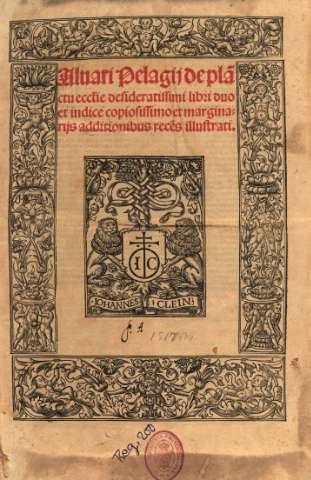 Aluari Pelagij de plā
ctu ecclīe desideratissimi libri duo
et indice copiosissimo et margina-
rijs additionibus recēs illustrati.
I C
IOHANNES CLEIN
Res. 200